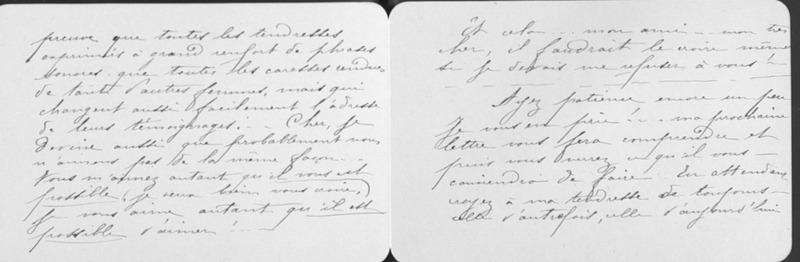 preuve que toutes les tendresses
exprimées à grand renfort de phrases
sonores que toutes les caresses
de tant d'autres femmes, mais qui
changent aussi facilement l'adresse
de leurs témoignages! -- Cher, je
devine aussi que probablement nous
n'aimons pas de la même façon...
Vous m'aimez autant qu'il vous est
possible, je veux bien vous croire,
Je vous aime autant qu'il est
possible d'aimer! --
Et cela... mon ami... mon très
cher, il faudrait le croire même
si je devais me refuser à vous! --
Ayez patience encore un peu
Je vous en prie! .. ma prochaine
lettre vous fera comprendre et
puis vous verrez ce qu'il vous
conviendra de faire. En attendant
croyez à ma tendresse de toujours
celle d'autrefois, celle d'aujourd'hui